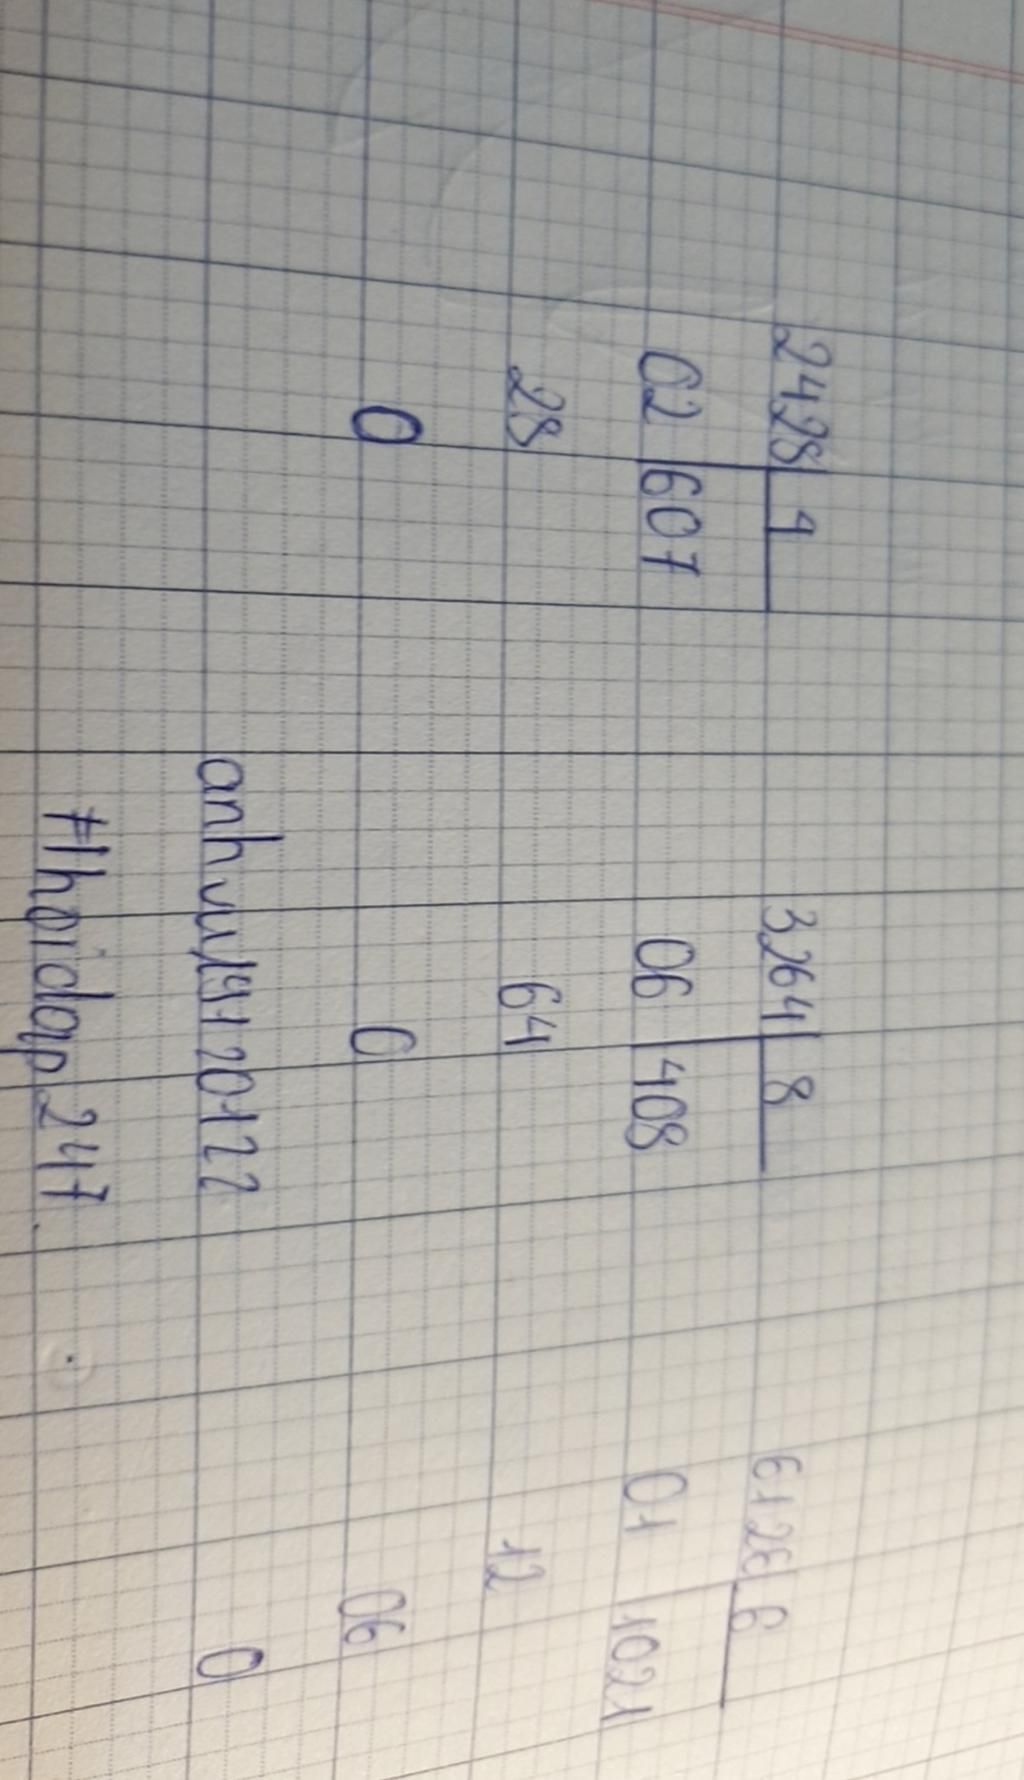 2428 4 3264 8 6126 6
02 607 06 408 01 1021
28 64 12
0 0 06
anhvu19120122 0
#hoidap247.